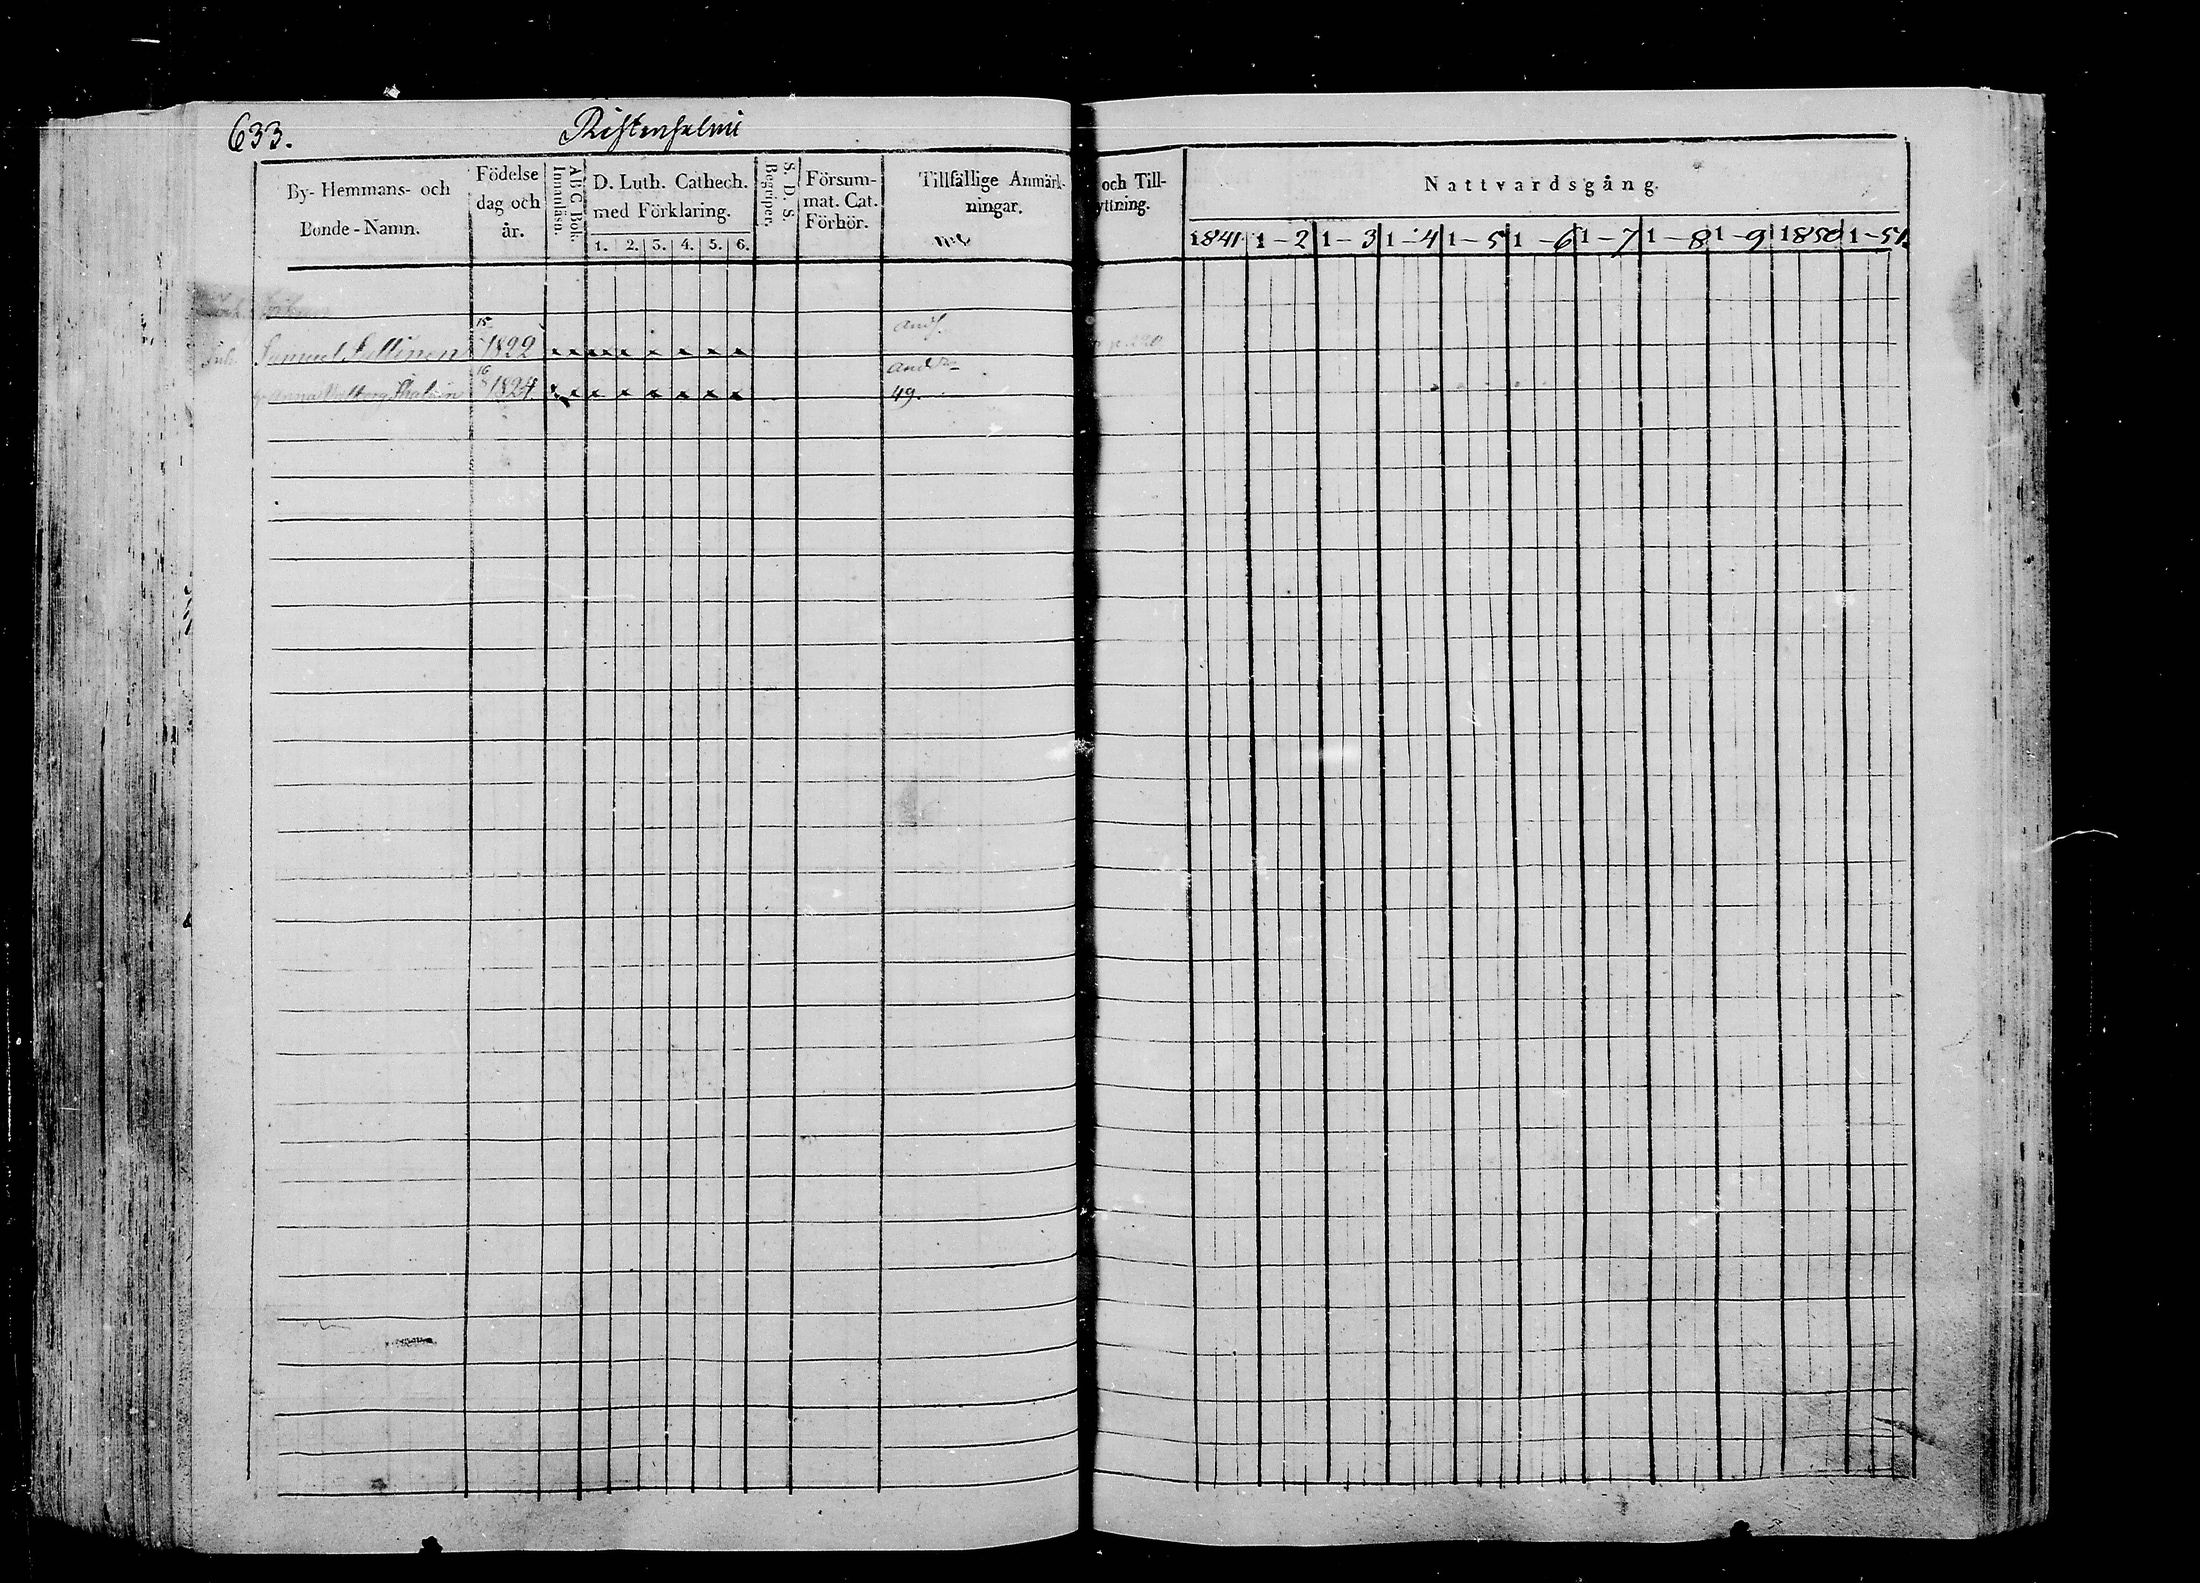 633. Ristensalmi
By- Hemmans- och Bonde-Namn.
Födelse dag och år.
ABC Bok. Innanläsn.
D. Luth. Cathech. med Förklaring.
1. 2. 3. 4. 5. 6.
S. D. S. Begriper.
Försum- mat. Cat. Förhör.
Tillfällige Anmärk- ningar.
och Till- yttning.
Nattvardsgång.
1841 1-2 1-3 1-4 1-5 1-6 1-7 1-8 1-9 1850 1-51.
Samuel 15 1822 x x x x x x x x
Anna 16 1824 x x x x x x x x 49.